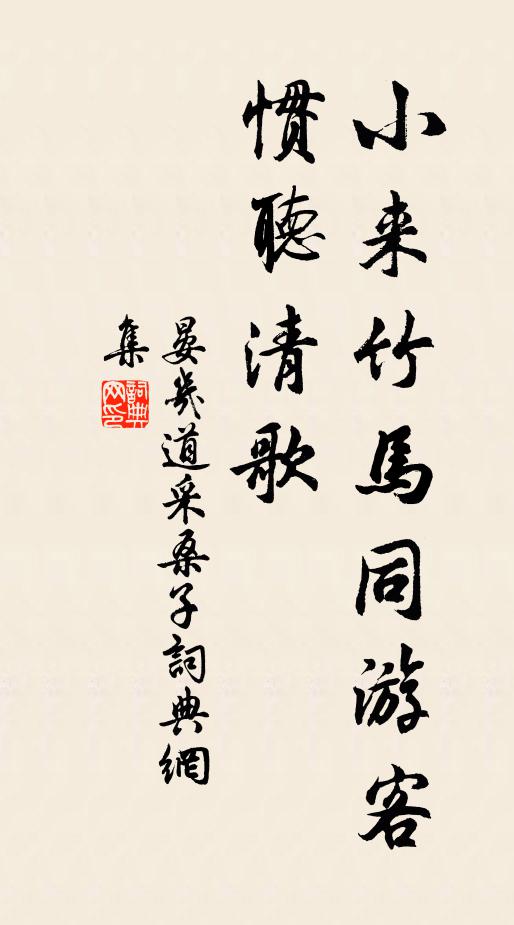 小来竹馬同游客
慣聽清歌
晏幾道采桑子詞典網
集
詞典網印